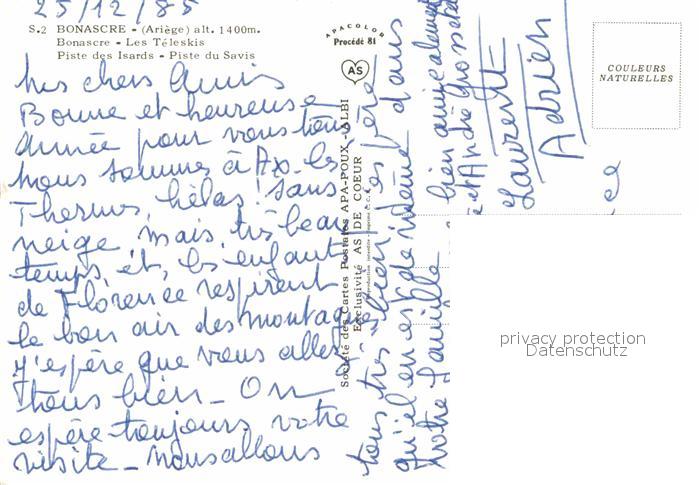 25/12/85
S.2 BONASCRE - (Ariège) alt. 1400m.
Bonascre - Les Téleskis
Piste des Isards - Piste du Savis
APACOLOR
Procédé 81
AS
COULEURS
NATURELLES
Mes chers Amis
Bonne et heureuse
année pour vous tous
nous sommes à Ax-les
Thermes, hélas! sans
neige mais, très beau
temps et, les enfants
de Florence respirent
le bon air des montagnes
J'espère que vous allez
tous bien - On
espère toujours votre
visite - nous allons
tous très bien
qu'il en est de même dans
votre famille
bien amicalement
et André
Laurent
Adrien
Société des Cartes Postales APA-POUX - ALBI
Exclusivité AS DE COEUR
privacy protection
Datenschutz